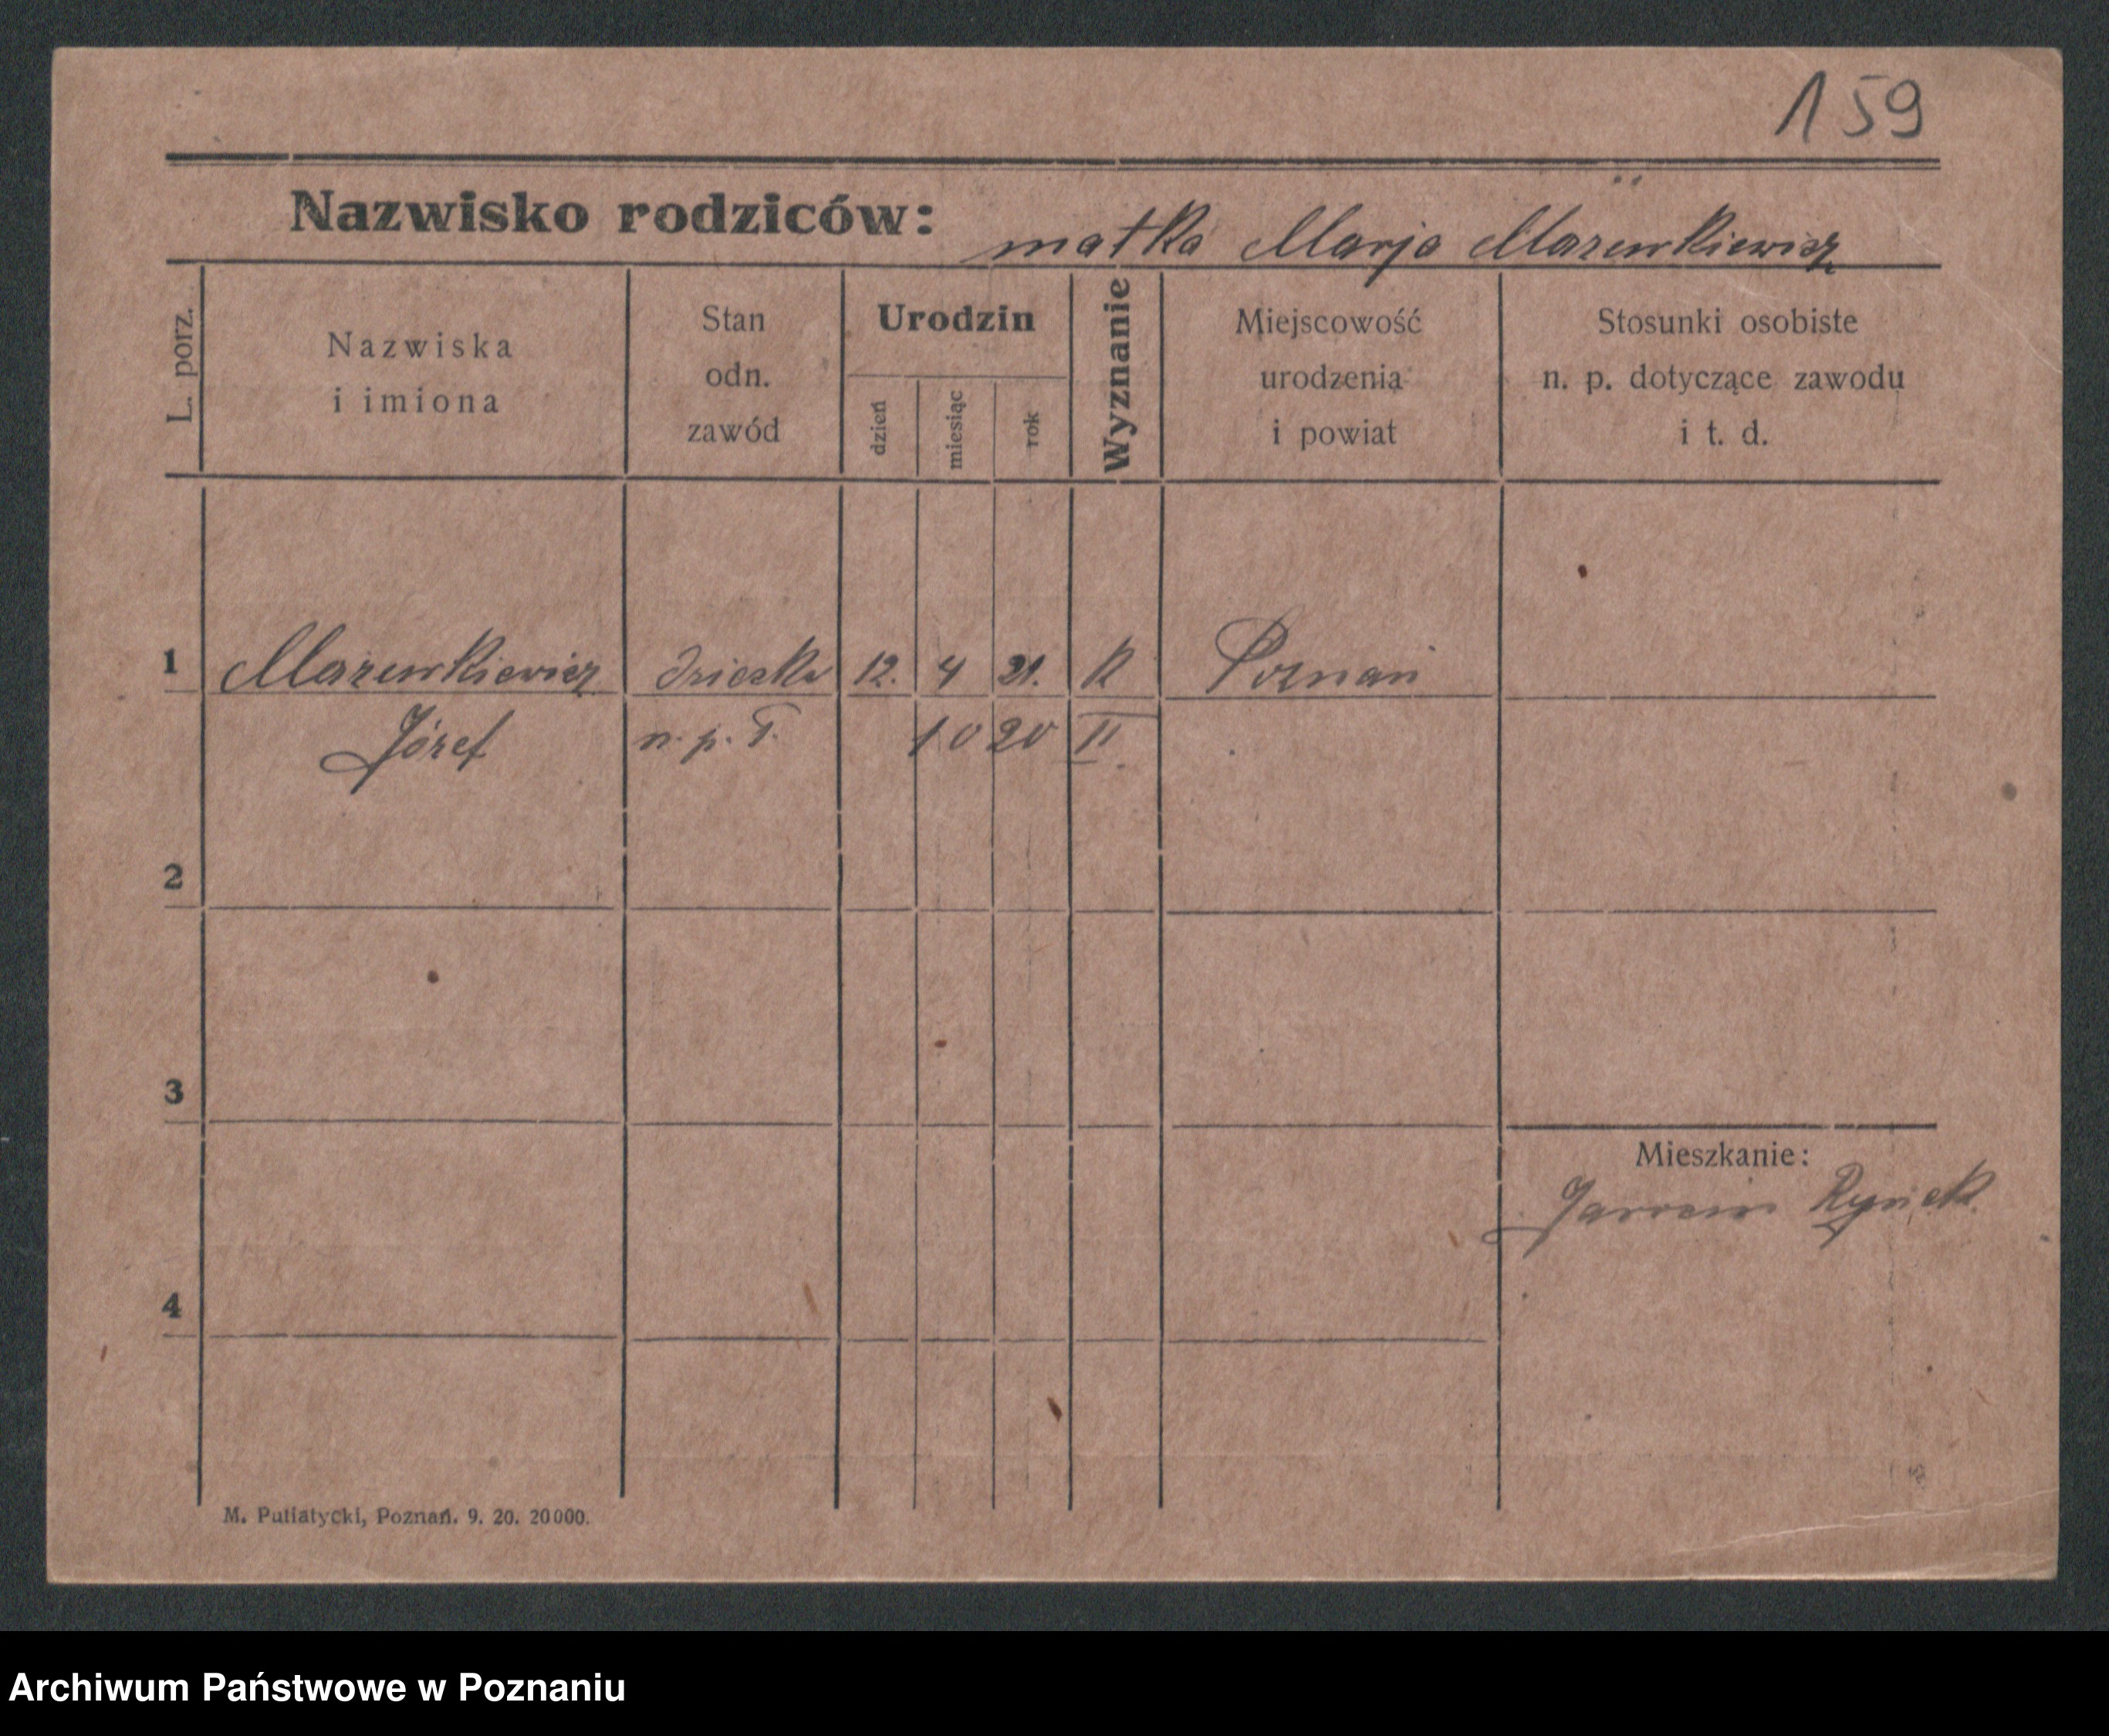 159
Nazwisko rodziców: matka Marja Mazurkiewicz
L. porz.
Nazwiska
i imiona
Stan
odn.
zawód
Urodzin
dzień
miesiąc
rok
Wyznanie
Miejscowość
urodzenia
i powiat
Stosunki osobiste
n. p. dotyczące zawodu
i t. d.
1 Mazurkiewicz dziecko 12. 4 21. K Poznań
Józef n. p. 10 20 II
2
3
Mieszkanie:
Rynek
4
M. Putiatycki, Poznań. 9. 20. 20000.
Archiwum Państwowe w Poznaniu